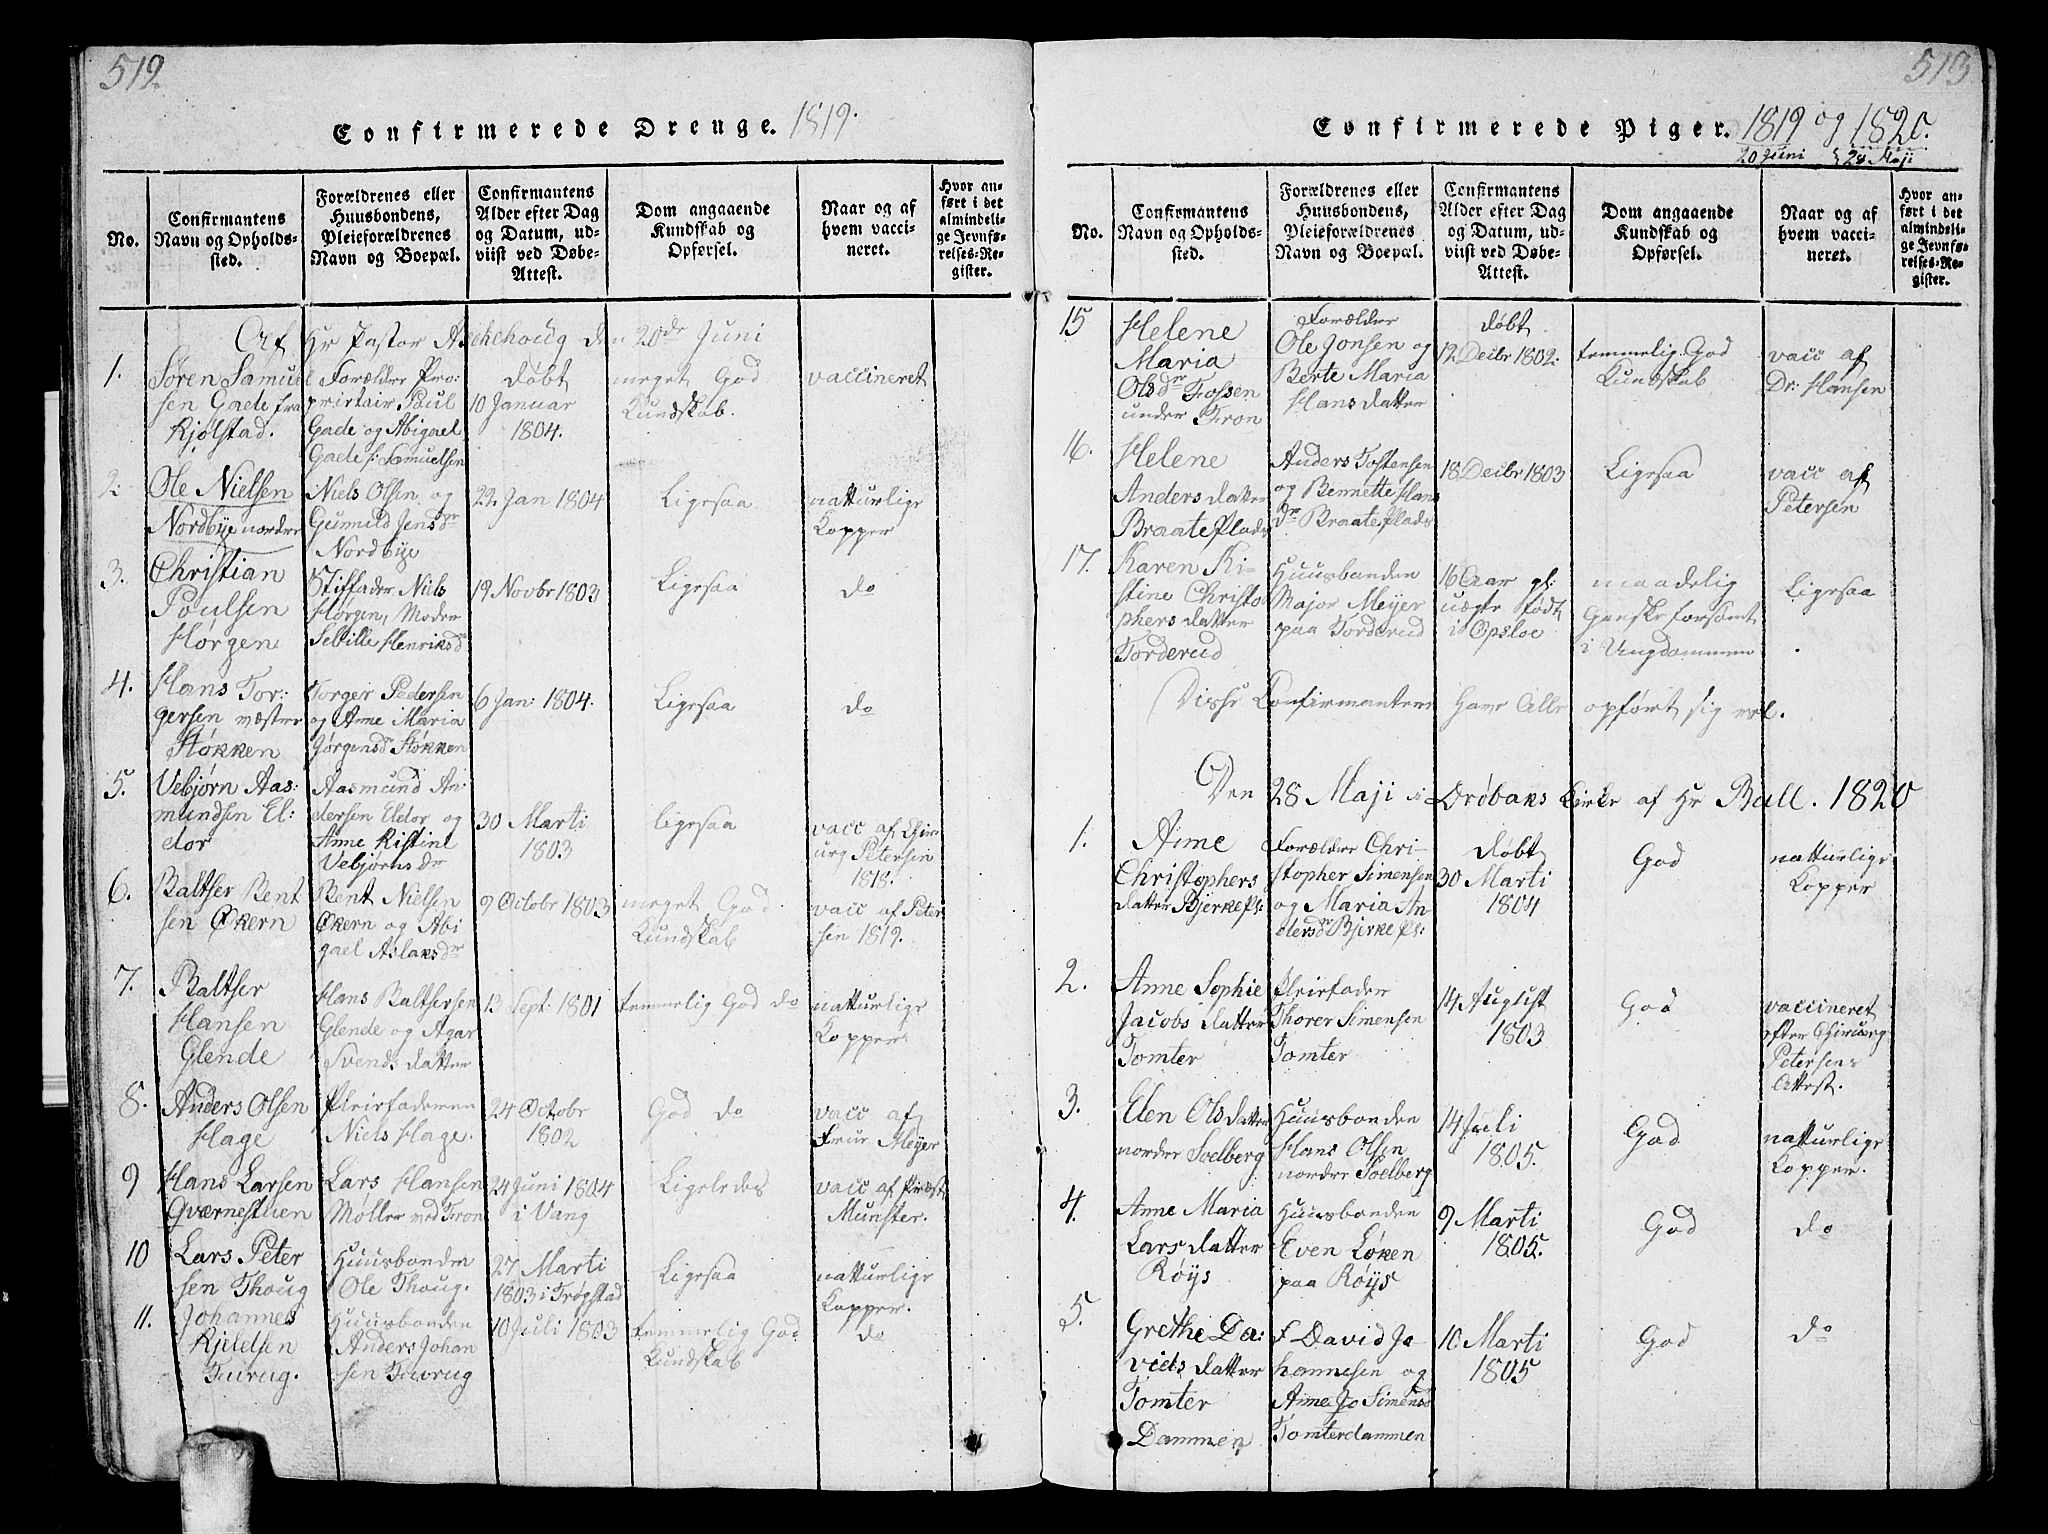 512.
Confirmerede Drenge. 1819.
No.
Confirmantens Navn og Opholds-sted.
Forældrenes eller Huusbondens, Pleieforældrenes Navn og Boepæl.
Confirmantens Alder efter Dag og Datum, ud-viist ved Døbe-Attest.
Dom angaaende Kundskab og Opførsel.
Naar og af hvem vacci-neret.
Hvor an-ført i det almindeli-ge Jevnfø-relses-Re-gister.
Af Hr Pastor Aschehoug den 20de Juni
1.
Søren Samuel
sen Gade fra
Kjølstad.
Forælder Pro-
prietair Poul
Gade og Abigael
Gade f: Samuelsen
døbt
10 Januar
1804.
meget God
Kundskab.
vaccineret
2.
Ole Nielsen
Nordbye nordre
Niels Olsen og
Gunnild Jensdr
Nordbye
22 Jan 1804
Ligesaa
natturlige
Kopper
3.
Christian
Poulsen
Horgen
Stiffader Niels
Horgen, Moder
Sebille Henriksdr
19 Novbr 1803
Ligesaa
do
4.
Hans Tor:
gersen væstre
Støkken
Torger Pedersen
og Anne Maria
Jørgensdr Støkken
6 Jan: 1804.
Ligesaa
do
5.
Vebjørn Aas-
mundsen El:
dor
Aasmund An-
dersen Eldor og
Anne Kistine
Vebjørnsdr
30 Marti
1803
ligesaa
vacc af Chir-
urg Petersen
1818.
6.
Baltser Bent
sen Økern
Bent Nielsen
Økern og Abi
gael Aslaksdr
9 Octobr 1803
meget God
Kundskab
vacc af Peter
sen 1819.
7.
Baltser
Hansen
Glende
Hans Baltsersen
Glende og Agar
Svends datter
13 Sept: 1801
temmelig God do
natturlige
Kopper
8.
Anders Olsen
Hage
Pleiefaderen
Niels Hage.
24 Octobr
1802
God do
vacc af
Frue Meyer
9
Hans Larsen
Qværnestuen
Lars Hansen
Møller ved Fron
24 Juni 1804
i Vang
Ligeledes
vacc af Præst
Munster.
10
Lars Peter
sen Thoug
Huusbonden
Ole Thoug.
27 Marti
1803 i Trøgstad
Ligesaa
natturlige
Kopper.
11.
Johannes
Kjeldsen
Huusbonden
Anders Johan
sen
10 Juli 1803
temmelig God
Kundskab
do
513
Confirmerede Piger. 1819 og 1820.
20 Juni 28 Maji
No.
Confirmantens Navn og Opholds-sted.
Forældrenes eller Huusbondens, Pleieforældrenes Navn og Boepæl.
Confirmantens Alder efter Dag og Datum, ud-viist ved Døbe-Attest.
Dom angaaende Kundskab og Opførsel.
Naar og af hvem vacci-neret.
Hvor an-ført i det almindeli-ge Jevnfø-relses-Re-gister.
15
Helene
Maria
Olsdr Fossen
under Fron
Forælder
Ole Jonsen og
Berte Maria
Hans datter
døbt
12 Decbr 1802.
temmelig God
Kundskab
vacc af
Dr: Hansen
16.
Helene
Anders datter
Braate Plads
Anders Tostensen
og Bennette Hans
dr Braate Plads
18 Decbr 1803
Ligesaa
vacc af
Petersen
17.
Karen Ki-
stine Christo
phers datter
Torderud
Huusbonden
Major Meyer
paa Torderud
16 Aar gl:
uægte født
i Opsloe
maadelig
Ganske forsømt
i Ungdommen
Ligesaa
Disse Confirmantere have Alle opført sig vel.
Den 28 Maji i Drøbaks Kirke af Hr Bull. 1820
1.
Anne
Christophers
datter Bjerke Pl:
Forælder Chri-
stopher Simensen
og Maria An
dersdr Bjerke Pl:
døbt
30 Marti
1804
God
natturlige
Kopper
2.
Anne Sophie
Jacobs datter
Tomter
Pleiefader
Thorer Simensen
Tomter
14 August
1803
God
vaccineret
efter Chirurg
Petersens
Attest.
3.
Elen Ols datter
nordre Soelberg
Huusbonden
Hans Olsen
nordre Soelberg
14 Juli
1805.
God
natturlige
Kopper.
4.
Anne Maria
Lars datter
Røys
Huusbonden
Even Løken
paa Røys
9 Marti
1805.
God
do
5.
Grethe Da:
vids datter
Tomter
Dammen
F David Jo
hannesen og
Anne Jo Simensdr
Tomterdammen
10 Marti
1805
God
do